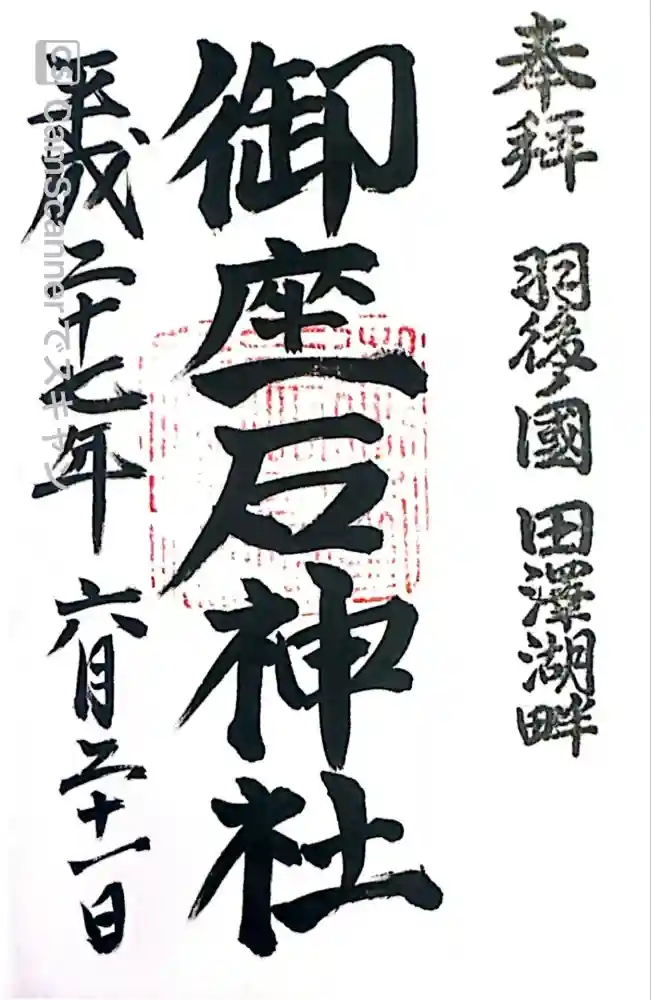 奉拝 羽後ノ國 田澤湖畔
御座石神社
平成二十七年 六月二十一日
CS CamScannerでスキャン